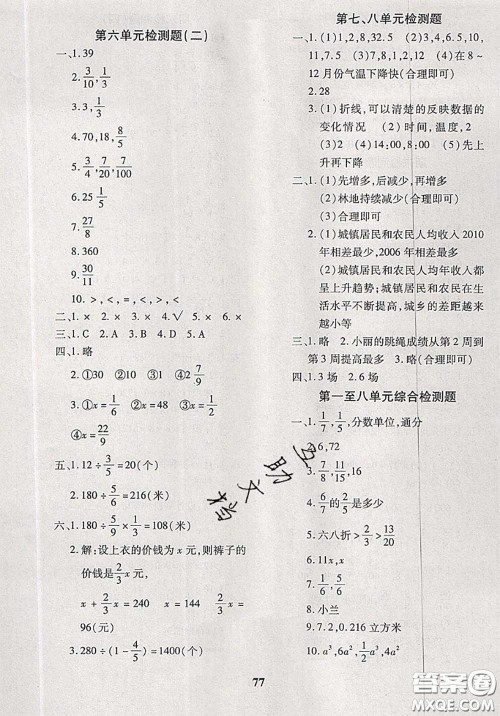 第六单元检测题(二)
一、1.39
2. 3/10, 3/10
3. 1/6, 9/16
4.70,18, 8/5
5. 7/2, 7/20, 7/100
6.25 1/5
7. 27/8
8.360
9. 30/11
10. >, <, =, <, >, <
二、1.× 2.× 3.× 4.√ 5.×
三、1.C 2.A 3.B 4.D 5.C
四、1.略
2. ①30 ②10 ③ 1/2 ④ 7/9
3. ①x= 1/6 ②x= 2/15 ③x= 2/9
④x= 6/23
五、1.12÷ 3/5 =20(个)
2.180÷ 5/6 =216(米)
六、1.180÷ 5/9 × 1/3 =108(米)
2.解:设上衣的价钱为x元,则裤子的
价钱是 2/3 x元。
x+ 2/3 x=240 x=144 2/3 x=
96(元)
3.280÷(1- 4/5 )=1400(个)
第七、八单元检测题
一、1.(1)1,2,8,32.5 (2)4,6.5,10,
11,7.5 (3)2,5,8,12 (4)在8~
12月份气温下降快(合理即可)
2.28
3.(1)折线,可以清楚的反映数据的
变化情况 (2)时间,温度,2
(3)2,4 (4)14:00,8:00 (5)先上
升再下降
二、1.(1)先增多,后减少,再增多
(2)林地持续减少(合理即可)
2.(1)城镇居民和农民人均收入2010
年相差最少,2006年相差最多
(2)城镇居民和农民人均收入都
呈上升趋势;城镇居民和农民在生
活水平不断提高,城乡的差距越来
越小等
三、1.略 2.小丽的跳绳成绩从第2周到
第3周提高最多 3.略(合理即可)
四、1.3场 2.6场
第一至八单元综合检测题
一、1. 1/7, 1/5,分数单位,通分
2.6,72
3. 7/8, 11/15, 16
4. 3/20的 1/5是多少
5.六八折> 2/3 > 13/20
6.11x,x
7. 2/9
8.小兰
9.7.2,0.216立方米
10.a³,6a², 1/2 a³,4a²
77
互助文档
答案圈
MXQE.COM